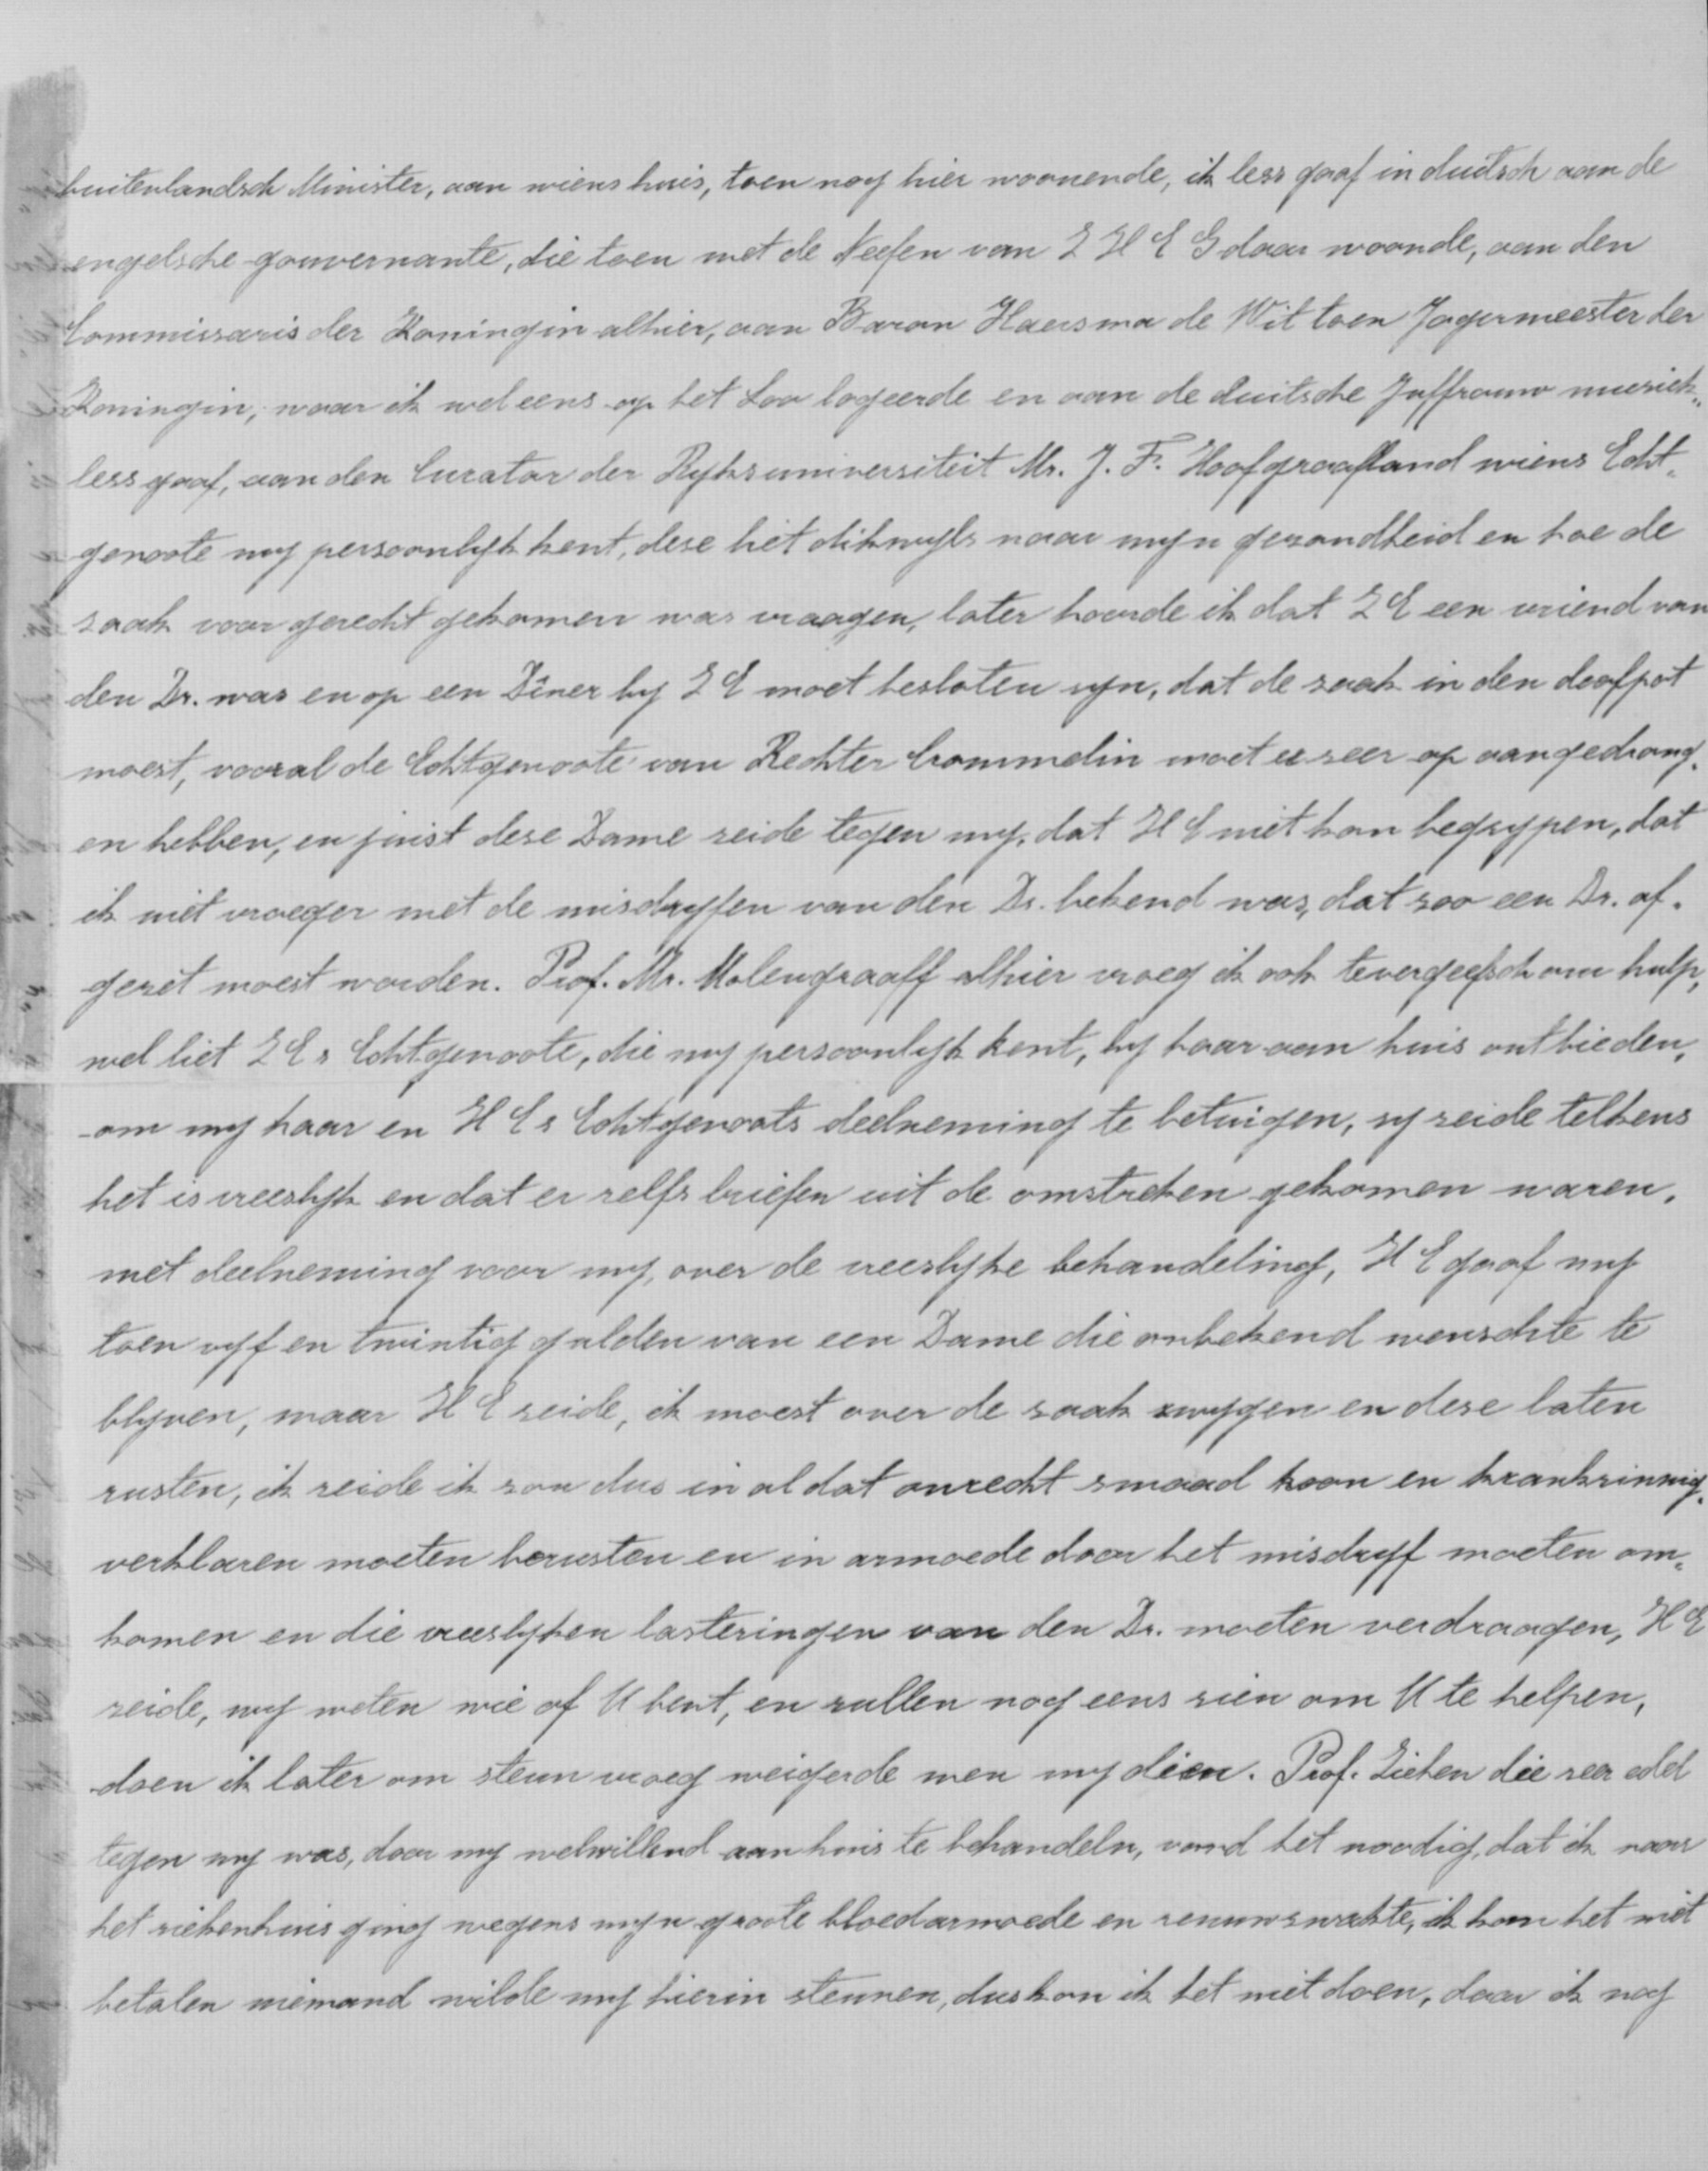 buitenlandsch Minister, aan wiens huis, toen nog hier woonende, ik less gaaf in duitsch aan de
engelsche gouvernante, die toen met de Neefen van Z H E G daar woonde, aan den
Commissaris der Koningin alhier, aan Baron Haersma de Wit toen Jagermeester der
Koningin, waar ik wel eens op het Loo logeerde en aan de duitsche Juffrouw musiek„
less gaaf, aan den Curator der Ryksuniversiteit Mr. J. F. Hoofgraafland wiens Echt„
genoote my persoonlyk kent, dese liet dikwyls naar myn gezondheid en hoe de
saak voor gerecht gekomen was vraagen, later hoorde ik dat Z E een vriend van
den Dr. was en op een Dîner by Z E moet besloten syn, dat de saak in den doofpot
moest, vooral de Echtgenoote van Rechter Crommelin moet er seer op aangedrong„
en hebben, en juist dese Dame seide tegen my, dat H E niet kon begrypen, dat
ik niet vroeger met de misdryfen van den Dr. bekend was, dat soo een Dr. af„
gezet moest worden. Prof. Mr. Molengraaff alhier vroeg ik ook tevergeefsch om hulp,
wel liet Z E s Echtgenoote, die my persoonlyk kent, by haar aan huis ontbieden,
om my haar en H E s Echtgenoots deelneming te betuigen, sy seide telkens
het is vreeslyk en dat er selfs briefen uit de omstreken gekomen waren,
met deelneming voor my, over de vreeslyke behandeling, H E gaaf my
toen vyf en twintig gulden van een Dame die onbekend wenschte te
blyven, maar H E seide, ik moest over de saak swygen en dese laten
rusten, ik seide ik sou dus in al dat onrecht smaad hoon en kranksinnig„
verklaren moeten berusten en in armoede door het misdryf moeten om„
komen en die vreeslyken lasteringen van den Dr. moeten verdraagen, H E
seide, wy weten wie of U bent, en sullen nog eens sien om U te helpen,
doen ik later om steun vroeg weigerde men my dien. Prof. Ziehen die seer edel
tegen my was, door my welwillend aan huis te behandeln, vond het noodig, dat ik naar
het siekenhuis ging wegens myn groote bloedarmoede en senuwswakte, ik kon het niet
betalen niemand wilde my hierin steunen, dus kon ik het niet doen, daar ik nog